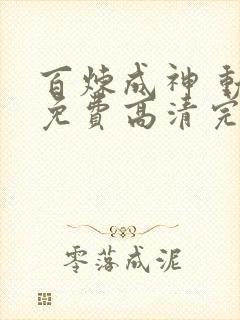 百炼成神 動
免費高清完
零落成泥